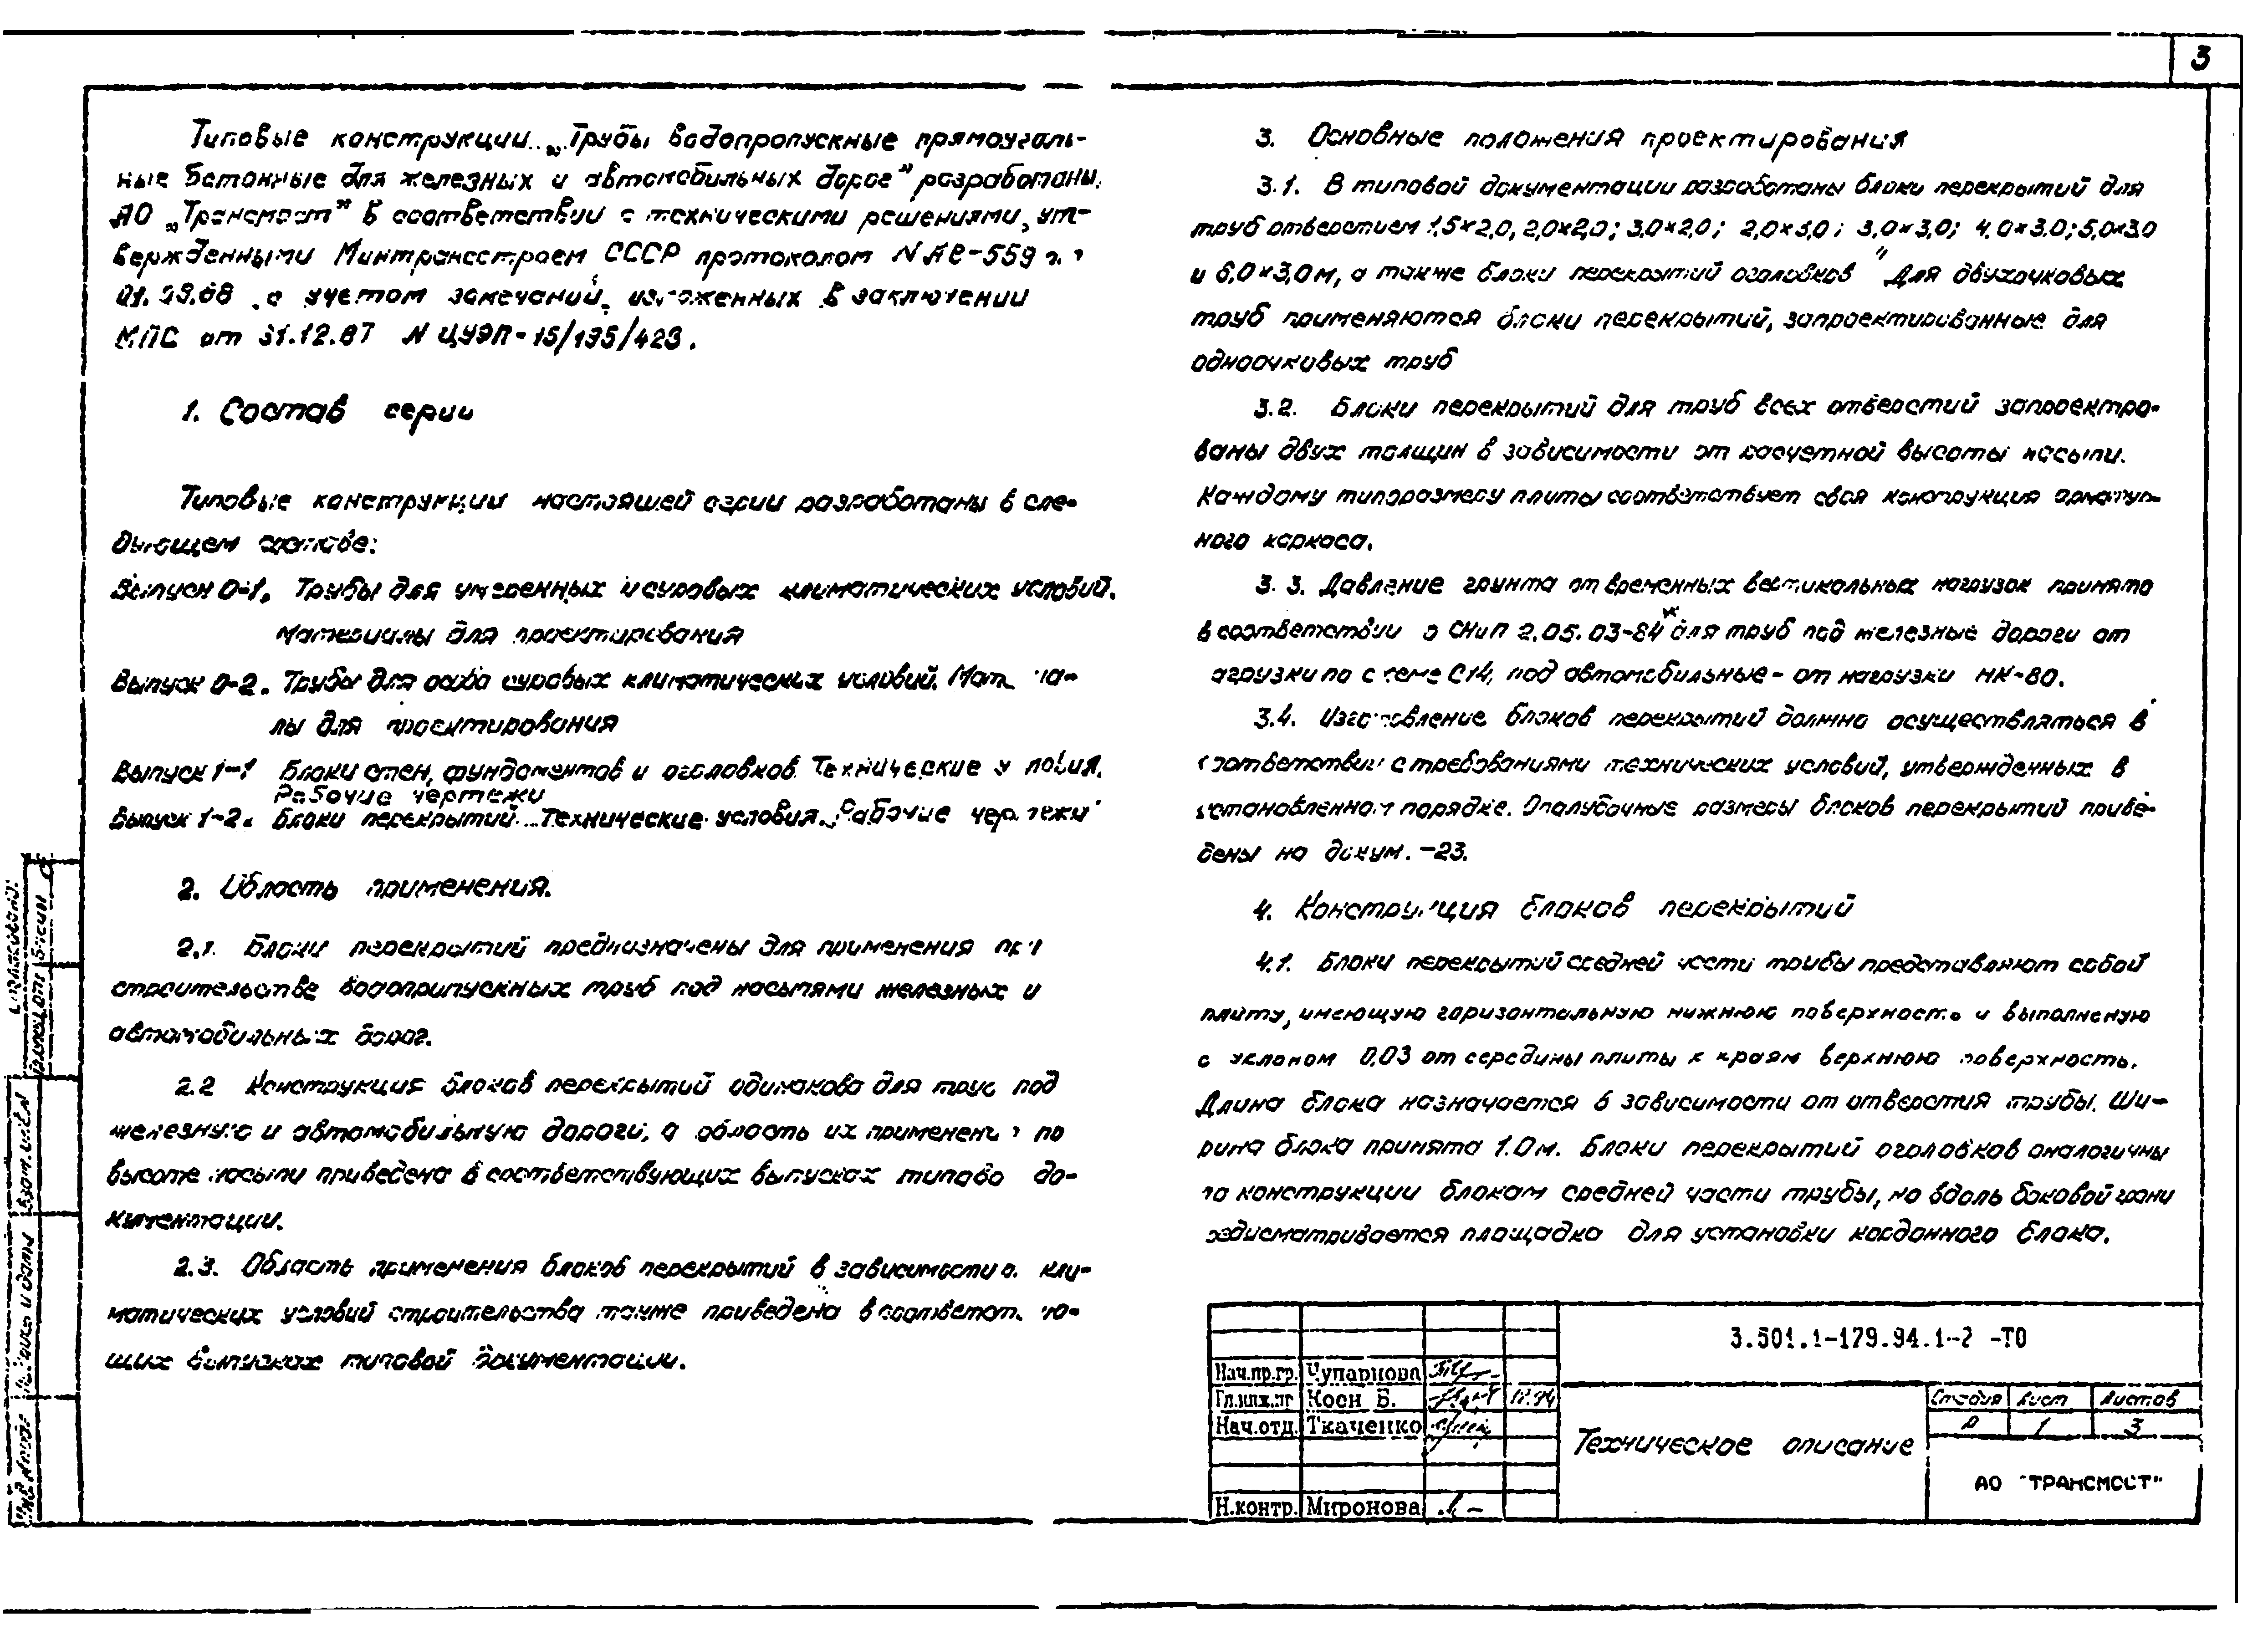 3
Типовые конструкции „Трубы водопропускные прямоуголь-
ные бетонные для железных и автомобильных дорог" разработаны
АО „Трансмост" в соответствии с техническими решениями, ут-
вержденными Минтрансстроем СССР протоколом
с учетом замечаний, изложенных в заключении
МПС от 31.12.87 N ЦУЭП-15/195/423.
1. Состав серии
Типовые конструкции настоящей серии разработаны в сле-
дующем составе:
Выпуск 0-1. Трубы для умеренных и суровых климатических условий.
Материалы для проектирования
Выпуск 0-2. Трубы для особо суровых климатических условий.
лы для проектирования
Выпуск 1-1 Блоки стен, фундаментов и оголовков. Технические условия.
Рабочие чертежи
Выпуск 1-2. Блоки перекрытий. Технические условия. Рабочие чертежи
2. Область применения.
2.1. Блоки перекрытий предназначены для применения при
строительстве водопропускных труб под насыпями железных и
автомобильных дорог.
2.2 Конструкция блоков перекрытий одинакова для труб под
железную и автомобильную дороги, а область их применения по
высоте насыпи приведена в соответствующих выпусках типово до-
кументации.
2.3. Область применения блоков перекрытий в зависимости от кли-
матических условий строительства также приведена в соответст ую-
щих выпусках типовой документации.
3. Основные положения проектирования
3.1. В типовой документации разработаны блоки перекрытий для
труб отверстием 1,5×2,0, 2,0×2,0; 3,0×2,0; 2,0×3,0; 3,0×3,0; 4,0×3,0; 5,0×3,0
и 6,0×3,0м, а также блоки перекрытий оголовков Для двухочковых
труб применяются блоки перекрытий, запроектированные для
одноочковых труб
3.2. Блоки перекрытий для труб всех отверстий запроектиро-
ваны двух толщин в зависимости от расчетной высоты насыпи.
Каждому типоразмеру плиты соответствует своя конструкция арматур-
ного каркаса.
3.3. Давление грунта от временных вертикальных нагрузок принято
в соответствии с СНиП 2.05.03-84* для труб под железные дороги от
агрузки по схеме С14, под автомобильные - от нагрузки НК-80.
3.4. Изготовление блоков перекрытий должно осуществляться в
соответствии с требованиями технических условий, утвержденных в
установленном порядке. Опалубочные размеры блоков перекрытий приве-
дены на докум. -23.
4. Конструкция блоков перекрытий
4.1. Блоки перекрытий средней части трубы представляют собой
плиту, имеющую горизонтальную нижнюю поверхность и выполненую
с уклоном 0,03 от середины плиты к краям верхнюю поверхность.
Длина блока назначается в зависимости от отверстия трубы. Ши-
рина блока принята 1.0м. Блоки перекрытий оголовков аналогичны
по конструкции блокам средней части трубы, но вдоль боковой грани
редусматривается площадка для установки кордонного блока.
3.501.1-179.94.1-2 -ТО
Нач.пр.гр. Чупарнова
Гл.инж.пр Коен Б. 12.94
Нач.отд. Ткаченко
Н.контр. Миронова
Техническое описание
Стадия Лист Листов
Р 1 3
АО "ТРАНСМОСТ"